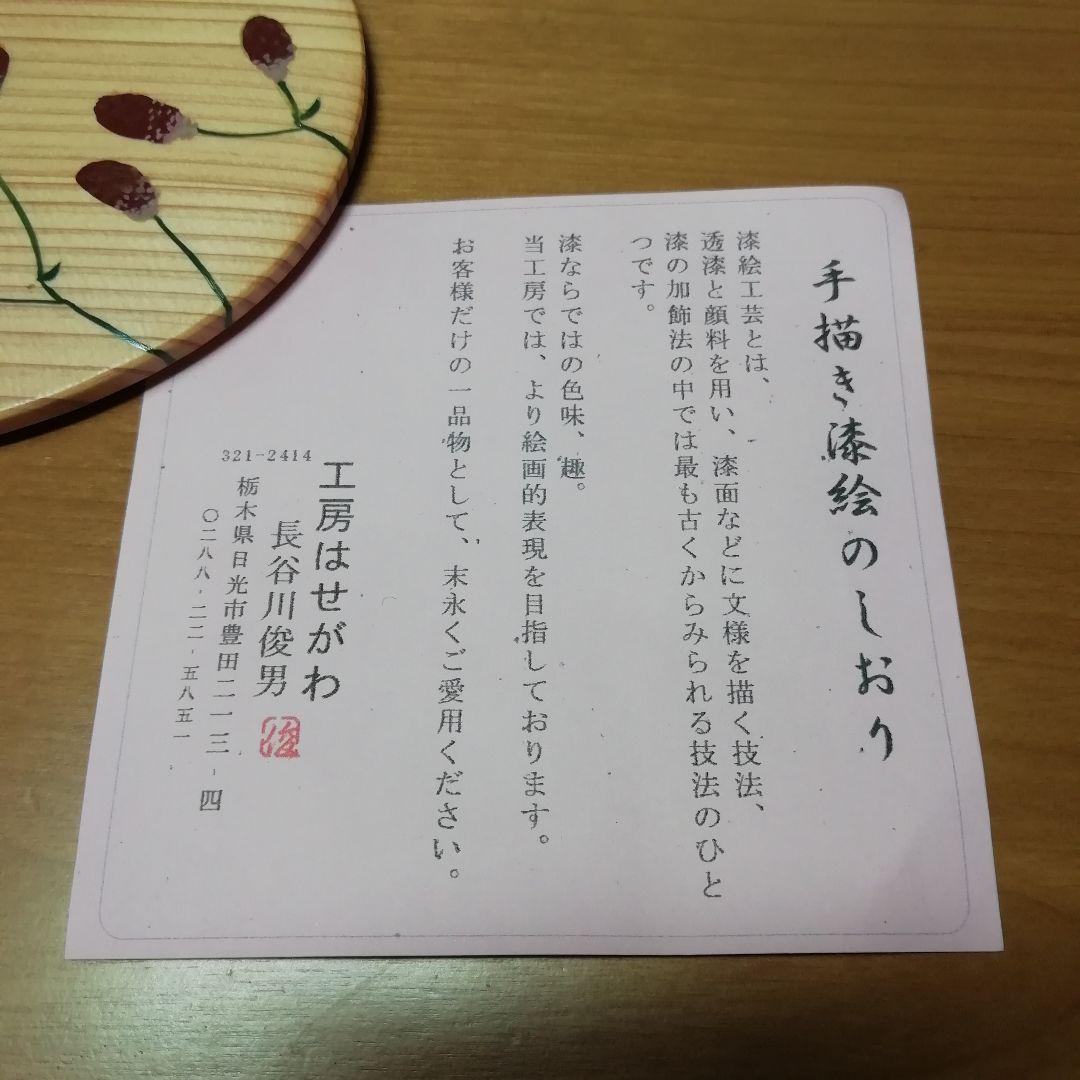 手描き漆絵のしおり
漆絵工芸とは、
透漆と顔料を用い、漆面などに文様を描く技法、
漆の加飾法の中では最も古くからみられる技法のひと
つです。
漆ならではの色味、趣。
当工房では、より絵画的表現を目指しております。
お客様だけの一品物として、末永くご愛用ください。
工房はせがわ
長谷川俊男
俊
321-2414
栃木県日光市豊田二一三-四
〇二八八-二二-五八五一